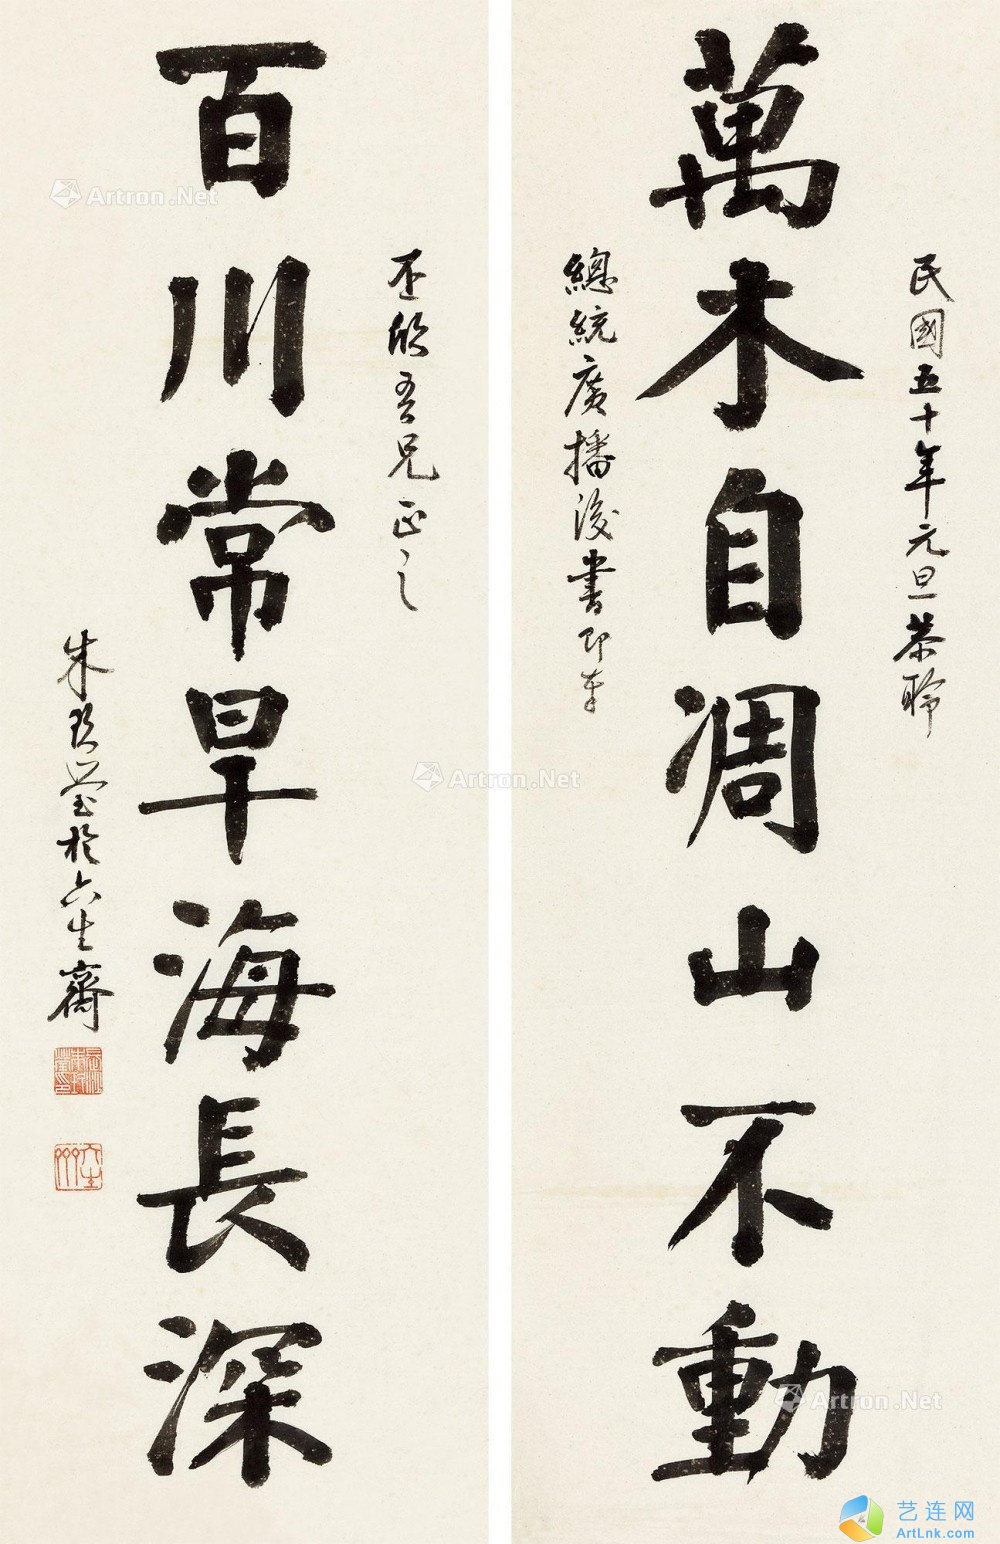 萬木自凋山不動
民國五十年元旦恭聆
總統廣播後書即奉
百川常旱海長深
丕欣吾兄正之
朱玖瑩於六生齋
Artron.Net
Artron.Net
Artron.Net
艺连网
ArtLnk.com